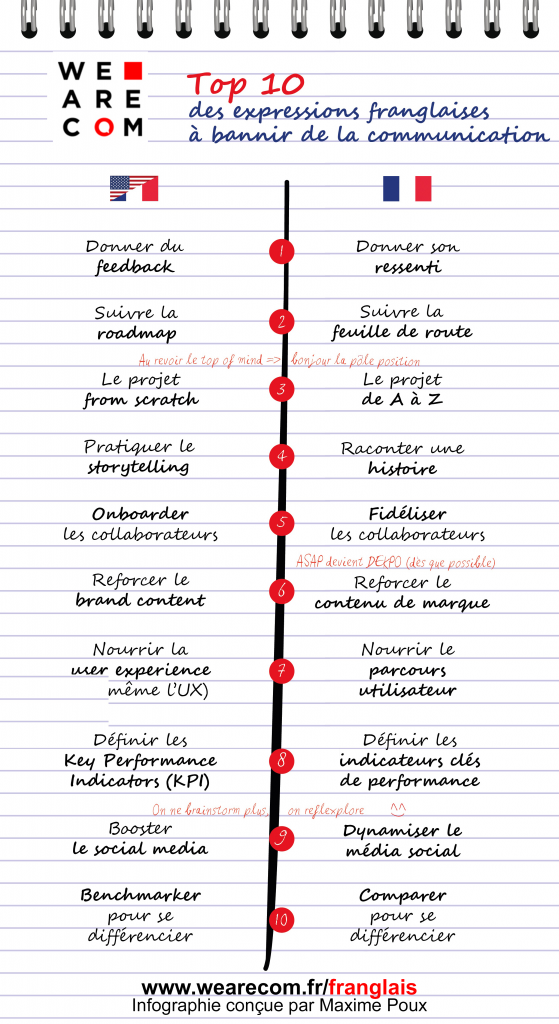 WE
ARE
COM
Top 10
des expressions franglaises
à bannir de la communication
Donner du
feedback
1
Donner son
ressenti
Suivre la
roadmap
2
Suivre la
feuille de route
Au revoir le top of mind => bonjour la pôle position
Le projet
from scratch
3
Le projet
de A à Z
Pratiquer le
storytelling
4
Raconter une
histoire
Onboarder
les collaborateurs
5
Fidéliser
les collaborateurs
ASAP devient DEXPO (dès que possible)
Reforcer le
brand content
6
Reforcer le
contenu de marque
Nourrir la
user experience
même l'UX)
7
Nourrir le
parcours
utilisateur
Définir les
Key Performance
Indicators (KPI)
8
Définir les
indicateurs clés
de performance
On ne brainstorm plus, on reflexplore ^^
Booster
le social media
9
Dynamiser le
média social
Benchmarker
pour se
différencier
10
Comparer
pour se
différencier
www.wearecom.fr/franglais
Infographie conçue par Maxime Poux